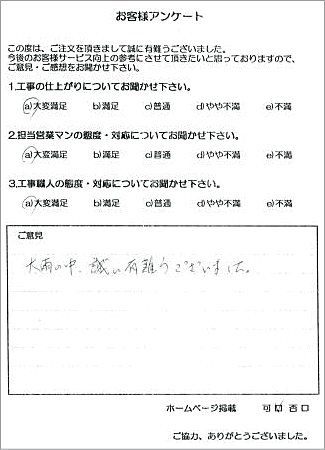 お客様アンケート
この度は、ご注文を頂きまして誠に有難うございました。
今後のお客様サービス向上の参考にさせて頂きたいと思っておりますので、
ご意見・ご感想をお聞かせ下さい。
1.工事の仕上がりについてお聞かせ下さい。
a)大変満足 b)満足 c)普通 d)やや不満 e)不満
2.担当営業マンの態度・対応についてお聞かせ下さい。
a)大変満足 b)満足 c)普通 d)やや不満 e)不満
3.工事職人の態度・対応についてお聞かせ下さい。
a)大変満足 b)満足 c)普通 d)やや不満 e)不満
ご意見
大雨の中、誠に有難うございました。
ホームページ掲載 可 否
ご協力、ありがとうございました。